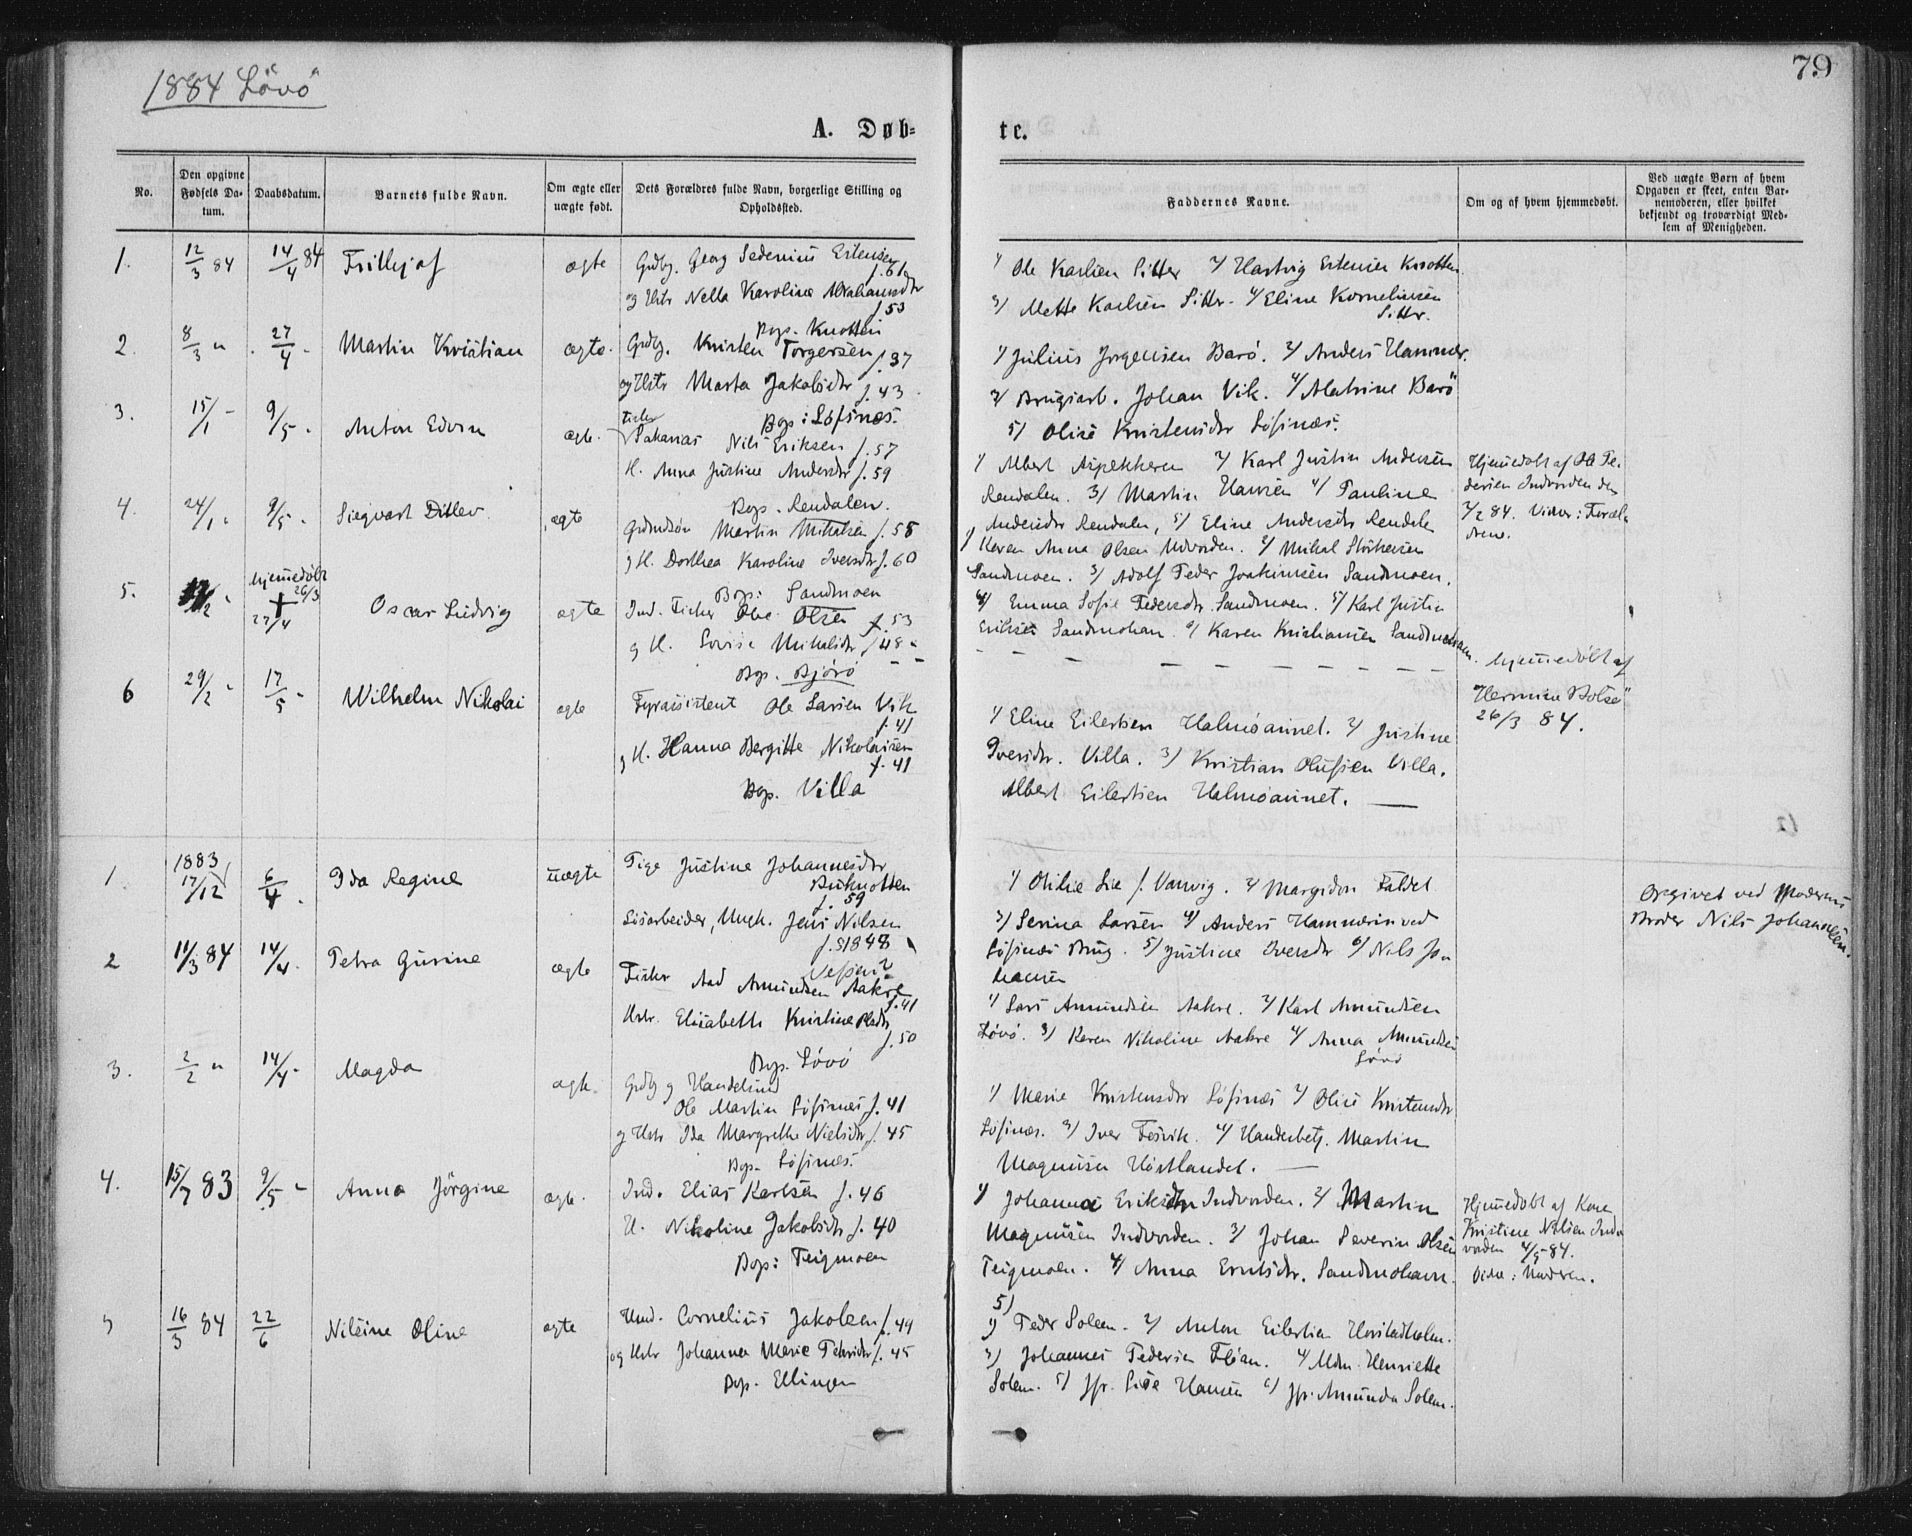 79
1884 Lövö
A. Døb-
te.
No.
Den opgivne Fødsels Da-tum.
Daabsdatum.
Barnets fulde Navn.
Om ægte eller uægte født.
Dets Forældres fulde Navn, borgerlige Stilling og Opholdssted.
Faddernes Navne.
Om og af hvem hjemmedøbt.
Ved uægte Børn af hvem Opgaven er skeet, enten Bar-nemoderen, eller hvilket bekjendt og troværdigt Med-lem af Menigheden.
1. 12/3 84 14/4 84 Frithjof ægte Grdbg. Georg Sedenius Ertensen f. 61
og Hstr Nella Karoline Abrahamsdtr f. 53
Bop. Knotten
1/ Ole Karlsen Sitter 2/ Hartvig Ertensen Knotten
3/ Mette Karlsen Sittr. 4/ Eline Korneliussen Sittr.
2. 8/3 " 27/4 - Martin Kristian ægte. Grdbg. Kristen Torgersen f. 37
og Hstr Marta Jakobsdtr f. 43
Bop: Löfsnæs.
1/ Julius Jørgensen Barö. 2/ Anders Hammer.
3/ Brugsarb. Johan Vik. 4/ Alatrine Barö
5/ Olise Kristensdtr Löfsnæs.
3. 15/1 - 9/5 - Anton Edvin ægte. Fisker Nils Eriksen f. 57
H. Anna Justine Andersdtr f. 59
Bop. Rendalen.
1/ Albert Aspekheren 2/ Karl Justin Andersen
Rendalen. 3/ Martin Hansen 4/ Pauline
Andersdtr Rendalen, 5/ Eline Andersdtr Rendalen
Hjemmedöbt af Ole Pe-
dersen Indvorden den
2/2 84. Vidner: Foræl-
drene.
4. 24/1 - 9/5 - Siegvart Ditlev ægte Martin Mikalsen f. 58
g H. Dorthea Karoline Iversdtr f. 60
Bop: Sandmoen
1/ Karen Anna Olsen Indvorden. 2/ Mikal
Sandmoen. 3/ Adolf Peder Joakimsen Sandmoen.
4/ Emma Sofie Pedersdtr Sandmoen. 5/ Karl Justin
Eriksen Sandmohavn 6/ Karen Kristiansen Sandmohavn.
5. hjemmedöbt 26/3 + 27/4 Oscar Ludvig ægte Ind. Fisker Ole Olsen f. 53
g H. Lovise Mikalsdtr f. 48 -
Bop. Björö
Hjemmedöbt af
Hermine Botsö
26/3 84.
6 29/2 - 17/5 - Wilhelm Nikolai ægte Fyrassistent Ole Larsen Vik f. 41
g H. Hanna Bergitte Nikolaisen f. 41
Bop. Villa
1/ Eline Eilertsen Halmöavnet. 2/ Justine
Iversdtr. Villa. 3/ Kristian Olufsen Villa.
Albert Eilertsen Halmöavnet.
1. 1883 17/12 6/4 . Ida Regine uægte Pige Justine Johannesdtr
Buknotten f. 59
Lisarbeider, Ungk. Jens Nilsen
f. 1848
1/ Otilie Lie f. Vanvig. 2/ Margidon Faldet
3/ Serina Larsen 4/ Anders Hammer ved
Löfsnæs Brug. 5/ Justine Iversdtr 6/ Nils Jo-
hansen
Opgivet ved Moderens
Broder Nils Johansen.
2 11/3 84 14/4. Petra Gurine ægte Fisker Aad Amundsen Aakre f. 41
Hstr. Elisabeth Kristine Olsdtr f. 50
Bop. Lövö
1/ Lars Amundsen Aakre. 2/ Karl Amundsen
Lövö. 3/ Karen Nikoline Aakre 4/ Anna Amundsen
Lövö
3. 2/2 " 14/4 - Magda ægte. Grdbg g Handelsmd
Ole Martin Löfsnæs f. 41
g Hstr Ida Margrethe Nielsdtr f. 45
Bop. Löfsnæs.
1/ Marie Kristensdtr Löfsnæs 2/ Olise Kristensdtr
Löfsnæs. 3/ Iver Fosvik. 4/ Handelsbetj. Martin
Magnusen Høstlandet.
4. 15/7 83 9/5 - Anna Jörgine ægte. Ind. Elias Karlsen f. 46
H. Nikoline Jakobsdtr f. 40
Bop: Teigmoen
1/ Johanna Eriksdtr Indvorden. 2/ Martin
Magnusen Indvorden. 3/ Johan Severin Olsen
Teigmoen. 4/ Anna Erntsdtr. Sandmohavn.
5)
Hjemmedöbt af Karen
Kristine Nilsen Ind-
vorden 4/5 84.
Vidne: Moderen.
5 16/3 84 22/6 Nilsine Oline ægte Hmd. Cornelius Jakobsen f. 44
og Hstr Johanna Marie Petersdtr f. 45
Bop. Ellingen
1) Peder Solem. 2/ Anton Eilertsen Horstadholm.
3/ Johannes Pedersen Flöan. 4/ Mdm. Henriette
Solem. 5/ Jfr. Lise Hansen 6/ Jfr. Amunda Solem.